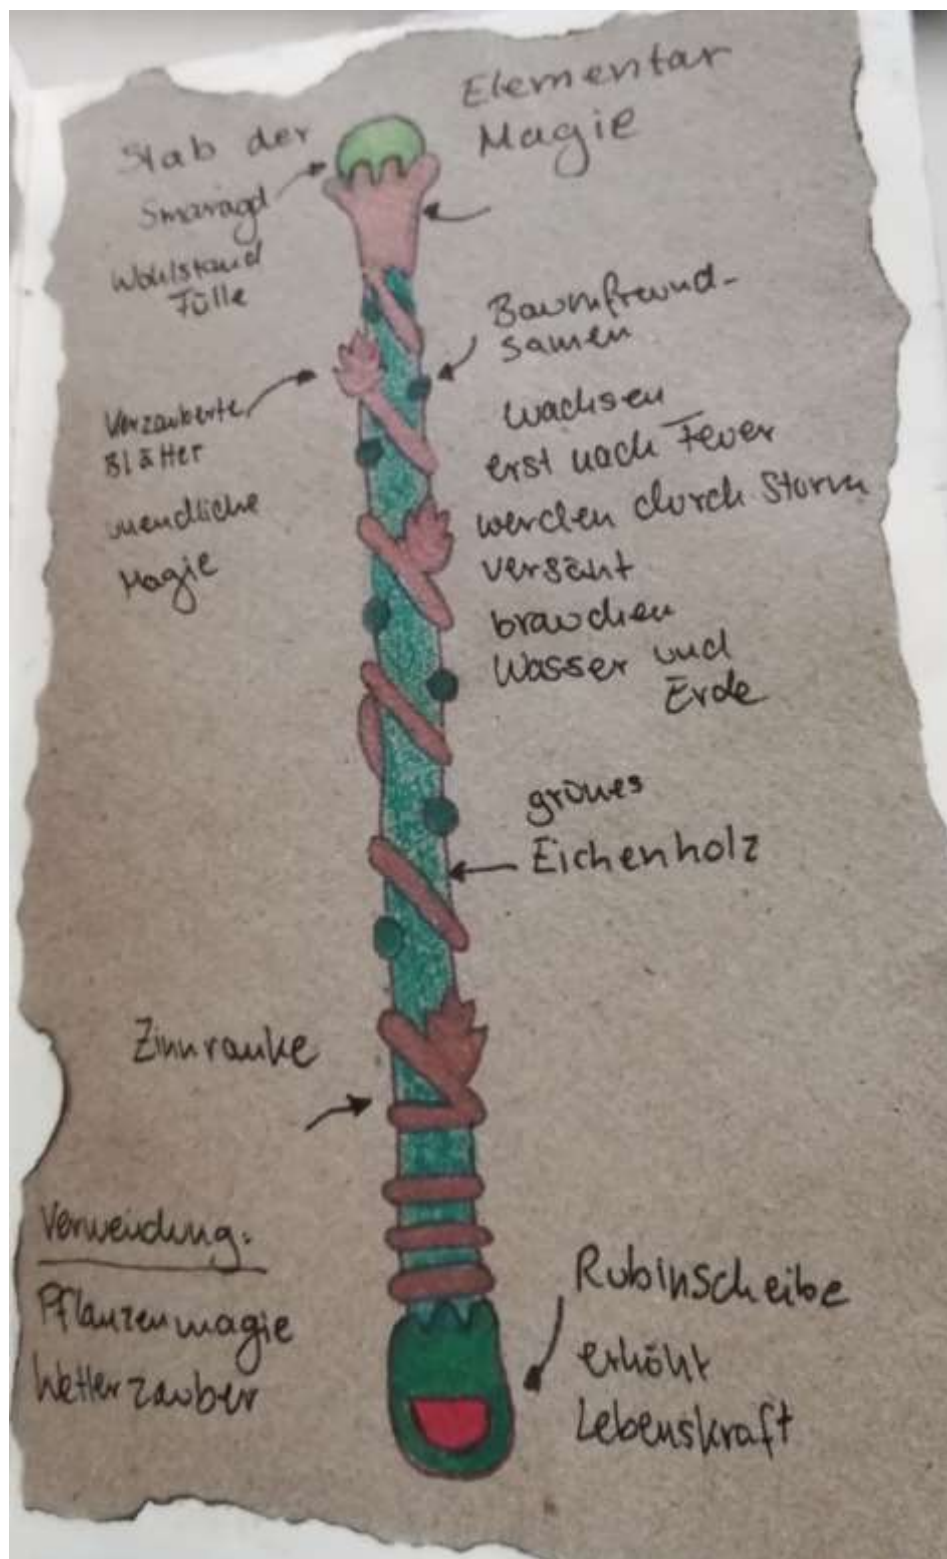 Stab der
Elementar
Magie
Smaragd
Wohlstand
Fülle
Baumfreund-
samen
wachsen
erst nach Feuer
werden durch Sturm
versäht
brauchen
Wasser und
Erde
Verzauberte
Blätter
unendliche
Magie
grünes
Eichenholz
Zinnranke
Verwendung:
Pflanzenmagie
Wetterzauber
Rubinscheibe
erhöht
Lebenskraft